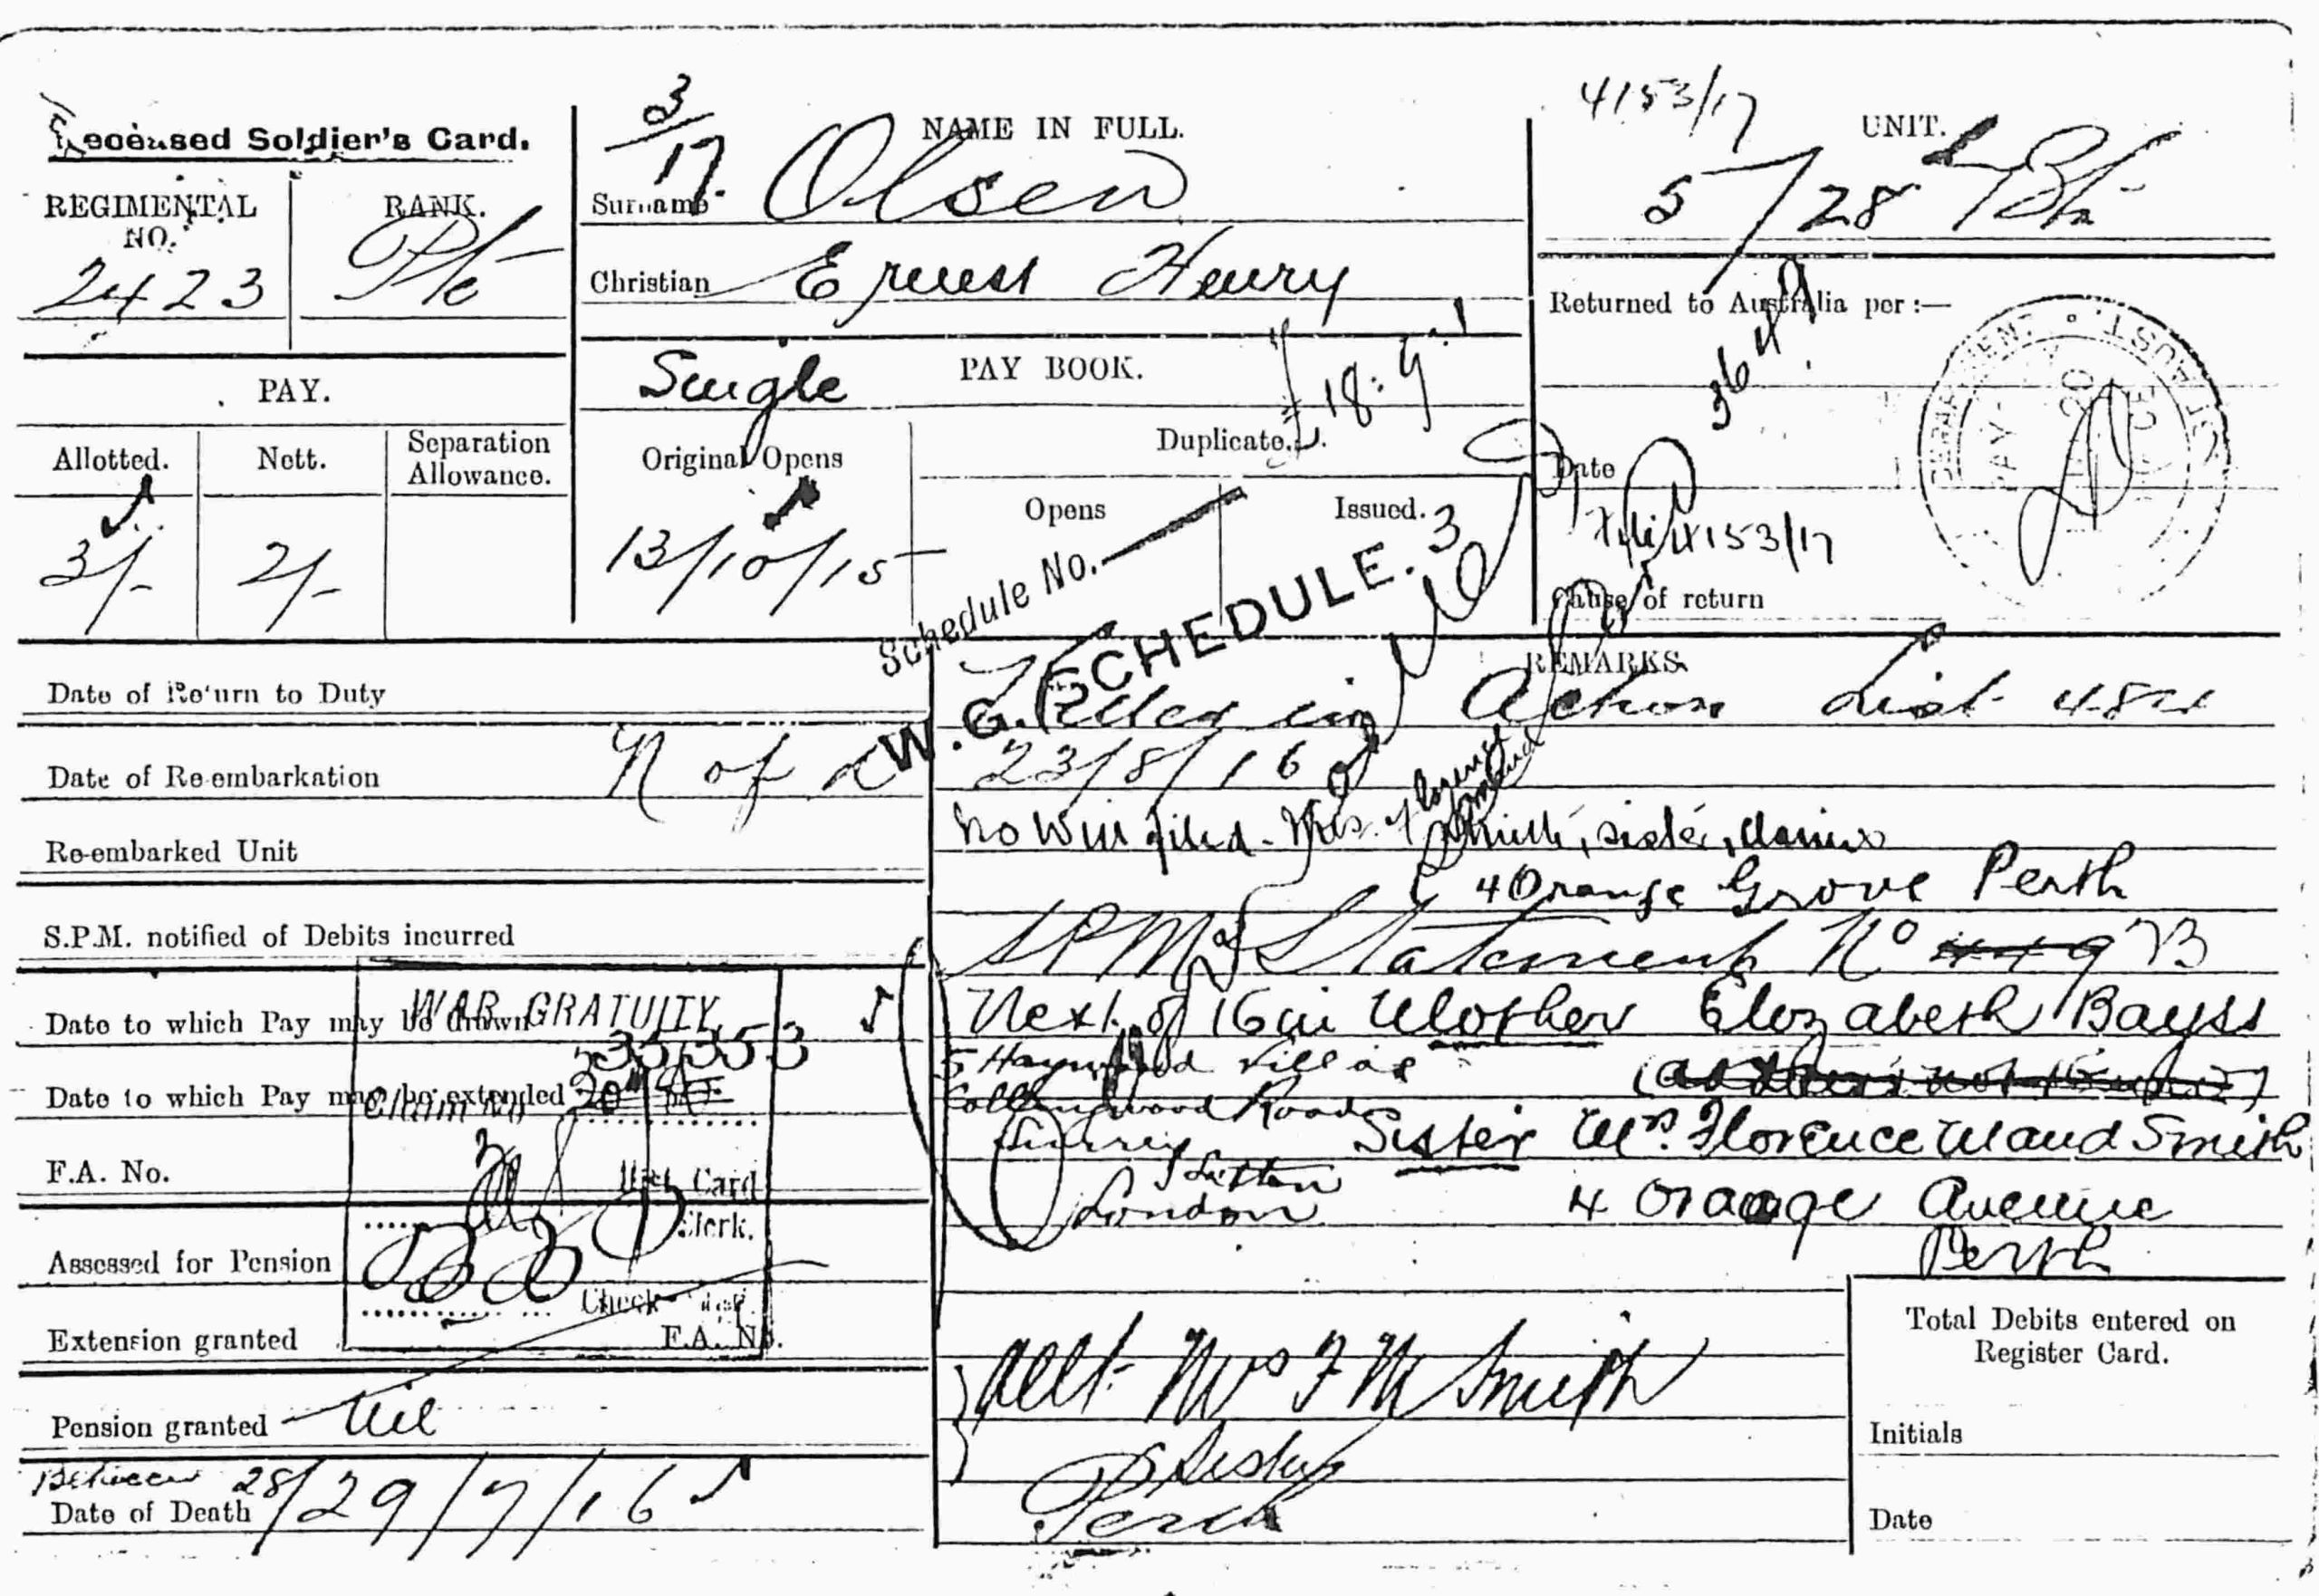 Deceased Soldier's Card.
REGIMENTAL NO.
2423
RANK.
Pte
3/17.
NAME IN FULL.
Surname Olsen
Christian Ernest Henry
4153/17
UNIT.
5/28 Bn
Returned to Australia per :—
Date
File 4153/17
Cause of return
PAY.
Allotted.
Nett.
Separation Allowance.
3/-
2/-
Single
PAY BOOK.
18.9
Original Opens
13/10/15
Duplicate.
Opens
Issued.
Schedule No.
W.G. SCHEDULE. 3
Date of Return to Duty
Date of Re-embarkation
N of
Re-embarked Unit
S.P.M. notified of Debits incurred
Date to which Pay may be drawn
Date to which Pay may be extended
F.A. No.
Assessed for Pension
Extension granted
Pension granted Nil
Between 28/29/7/16
Date of Death
WAR GRATUITY
35353
Claim No
Hist. Card
Clerk.
Check
F.A. No.
REMARKS.
Killed in Action List 484
23/8/16
No Will filed. Mrs. Florence Maud Smith, sister, claims
4 Orange Grove Perth
SPM's Statement No 9 B
Next of Kin Mother Elizabeth Bayss
5 Haywood Villas
Collingwood Road
Surrey
Sutton
London
Sister Mrs. Florence Maud Smith
4 Orange Avenue
Perth
Allt Mrs F M Smith
Sister
Perth
Total Debits entered on
Register Card.
Initials
Date